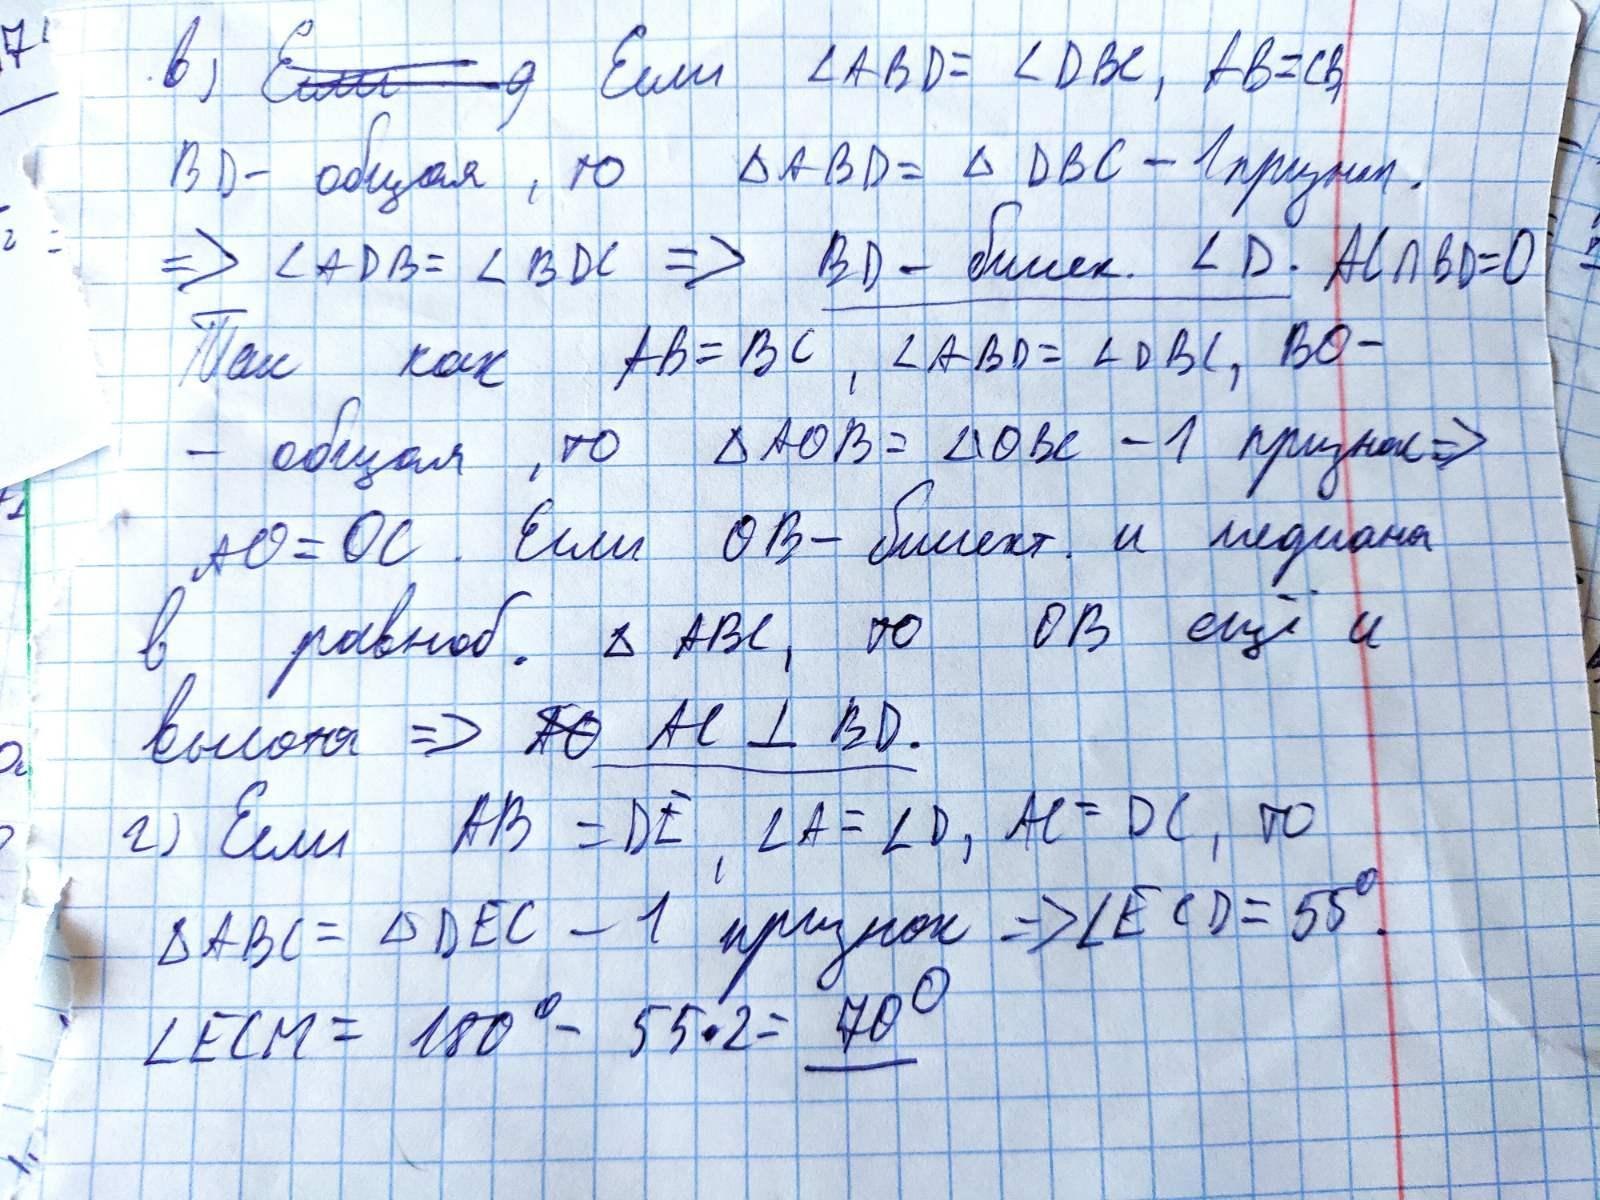 в) Если д Если ∠ABD = ∠DBC, AB=CB,
BD - общая, то △ABD = △DBC - 1 призн.
=> ∠ADB = ∠BDC => BD - биссек. ∠D. AC∩BD=O
Так как AB = BC, ∠ABD = ∠DBC, BO -
- общая, то △AOB = △OBC - 1 признак =>
AO = OC. Если OB - биссект. и медиана
в равноб. △ABC, то OB ещё и
высота => AO AC ⊥ BD.
г) Если AB = DE, ∠A = ∠D, AC = DC, то
△ABC = △DEC - 1 признак => ∠ECD = 55°.
∠ECM = 180° - 55·2 = 70°